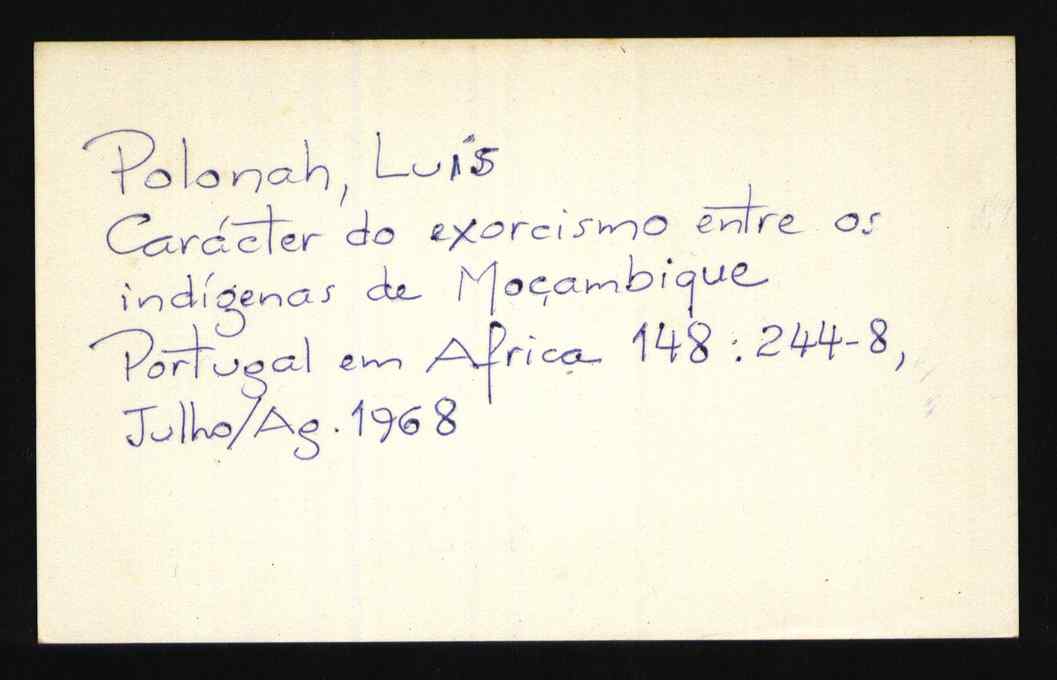 Polonah, Luís
Carácter do exorcismo entre os
indígenas de Moçambique
Portugal em Africa 148: 244-8,
Julho/Ag. 1968